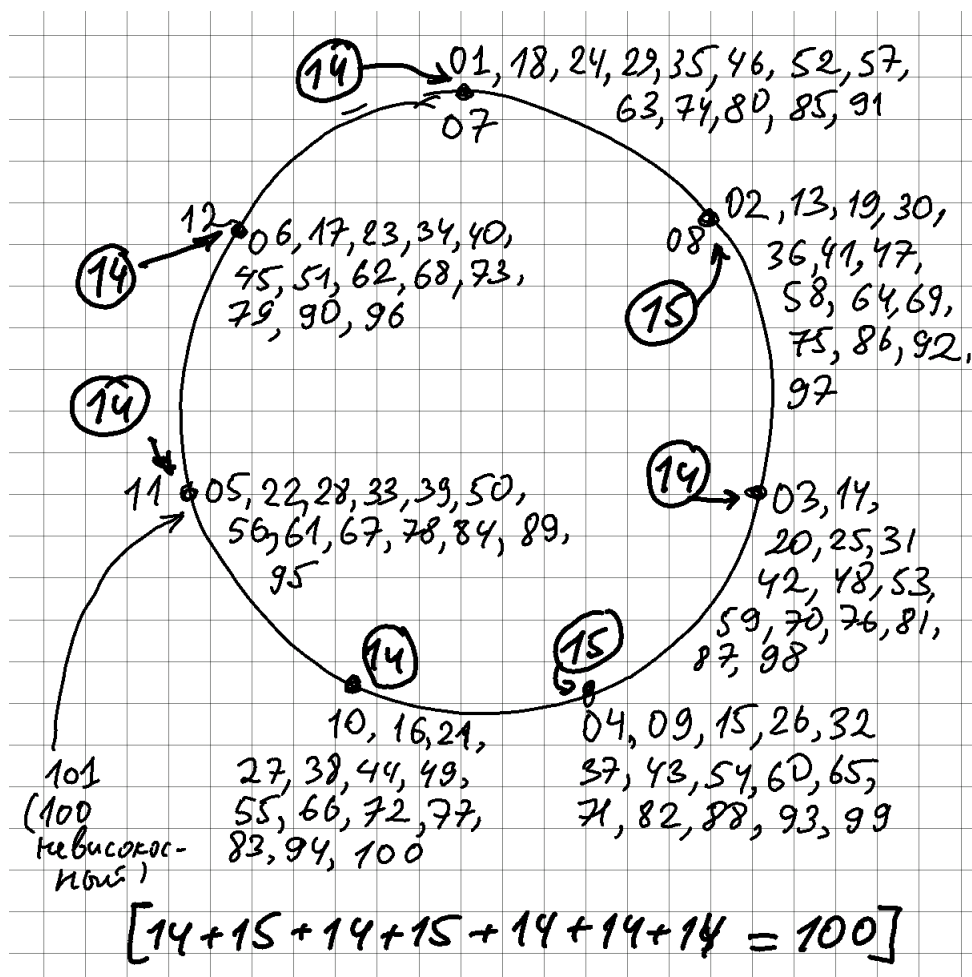 14
01, 18, 24, 29, 35, 46, 52, 57,
63, 74, 80, 85, 91
07
12
06, 17, 23, 34, 40,
45, 51, 62, 68, 73,
79, 90, 96
14
02, 13, 19, 30,
08
36, 41, 47,
58, 64, 69,
75, 86, 92,
97
15
14
11
05, 22, 28, 33, 39, 50,
56, 61, 67, 78, 84, 89,
95
14
03, 14,
20, 25, 31
42, 48, 53,
59, 70, 76, 81,
87, 98
14
10, 16, 21,
27, 38, 44, 49,
55, 66, 72, 77,
83, 94, 100
15
04, 09, 15, 26, 32
37, 43, 54, 60, 65,
71, 82, 88, 93, 99
101
(100
невисокос-
ный)
[14+15+14+15+14+14+14 = 100]